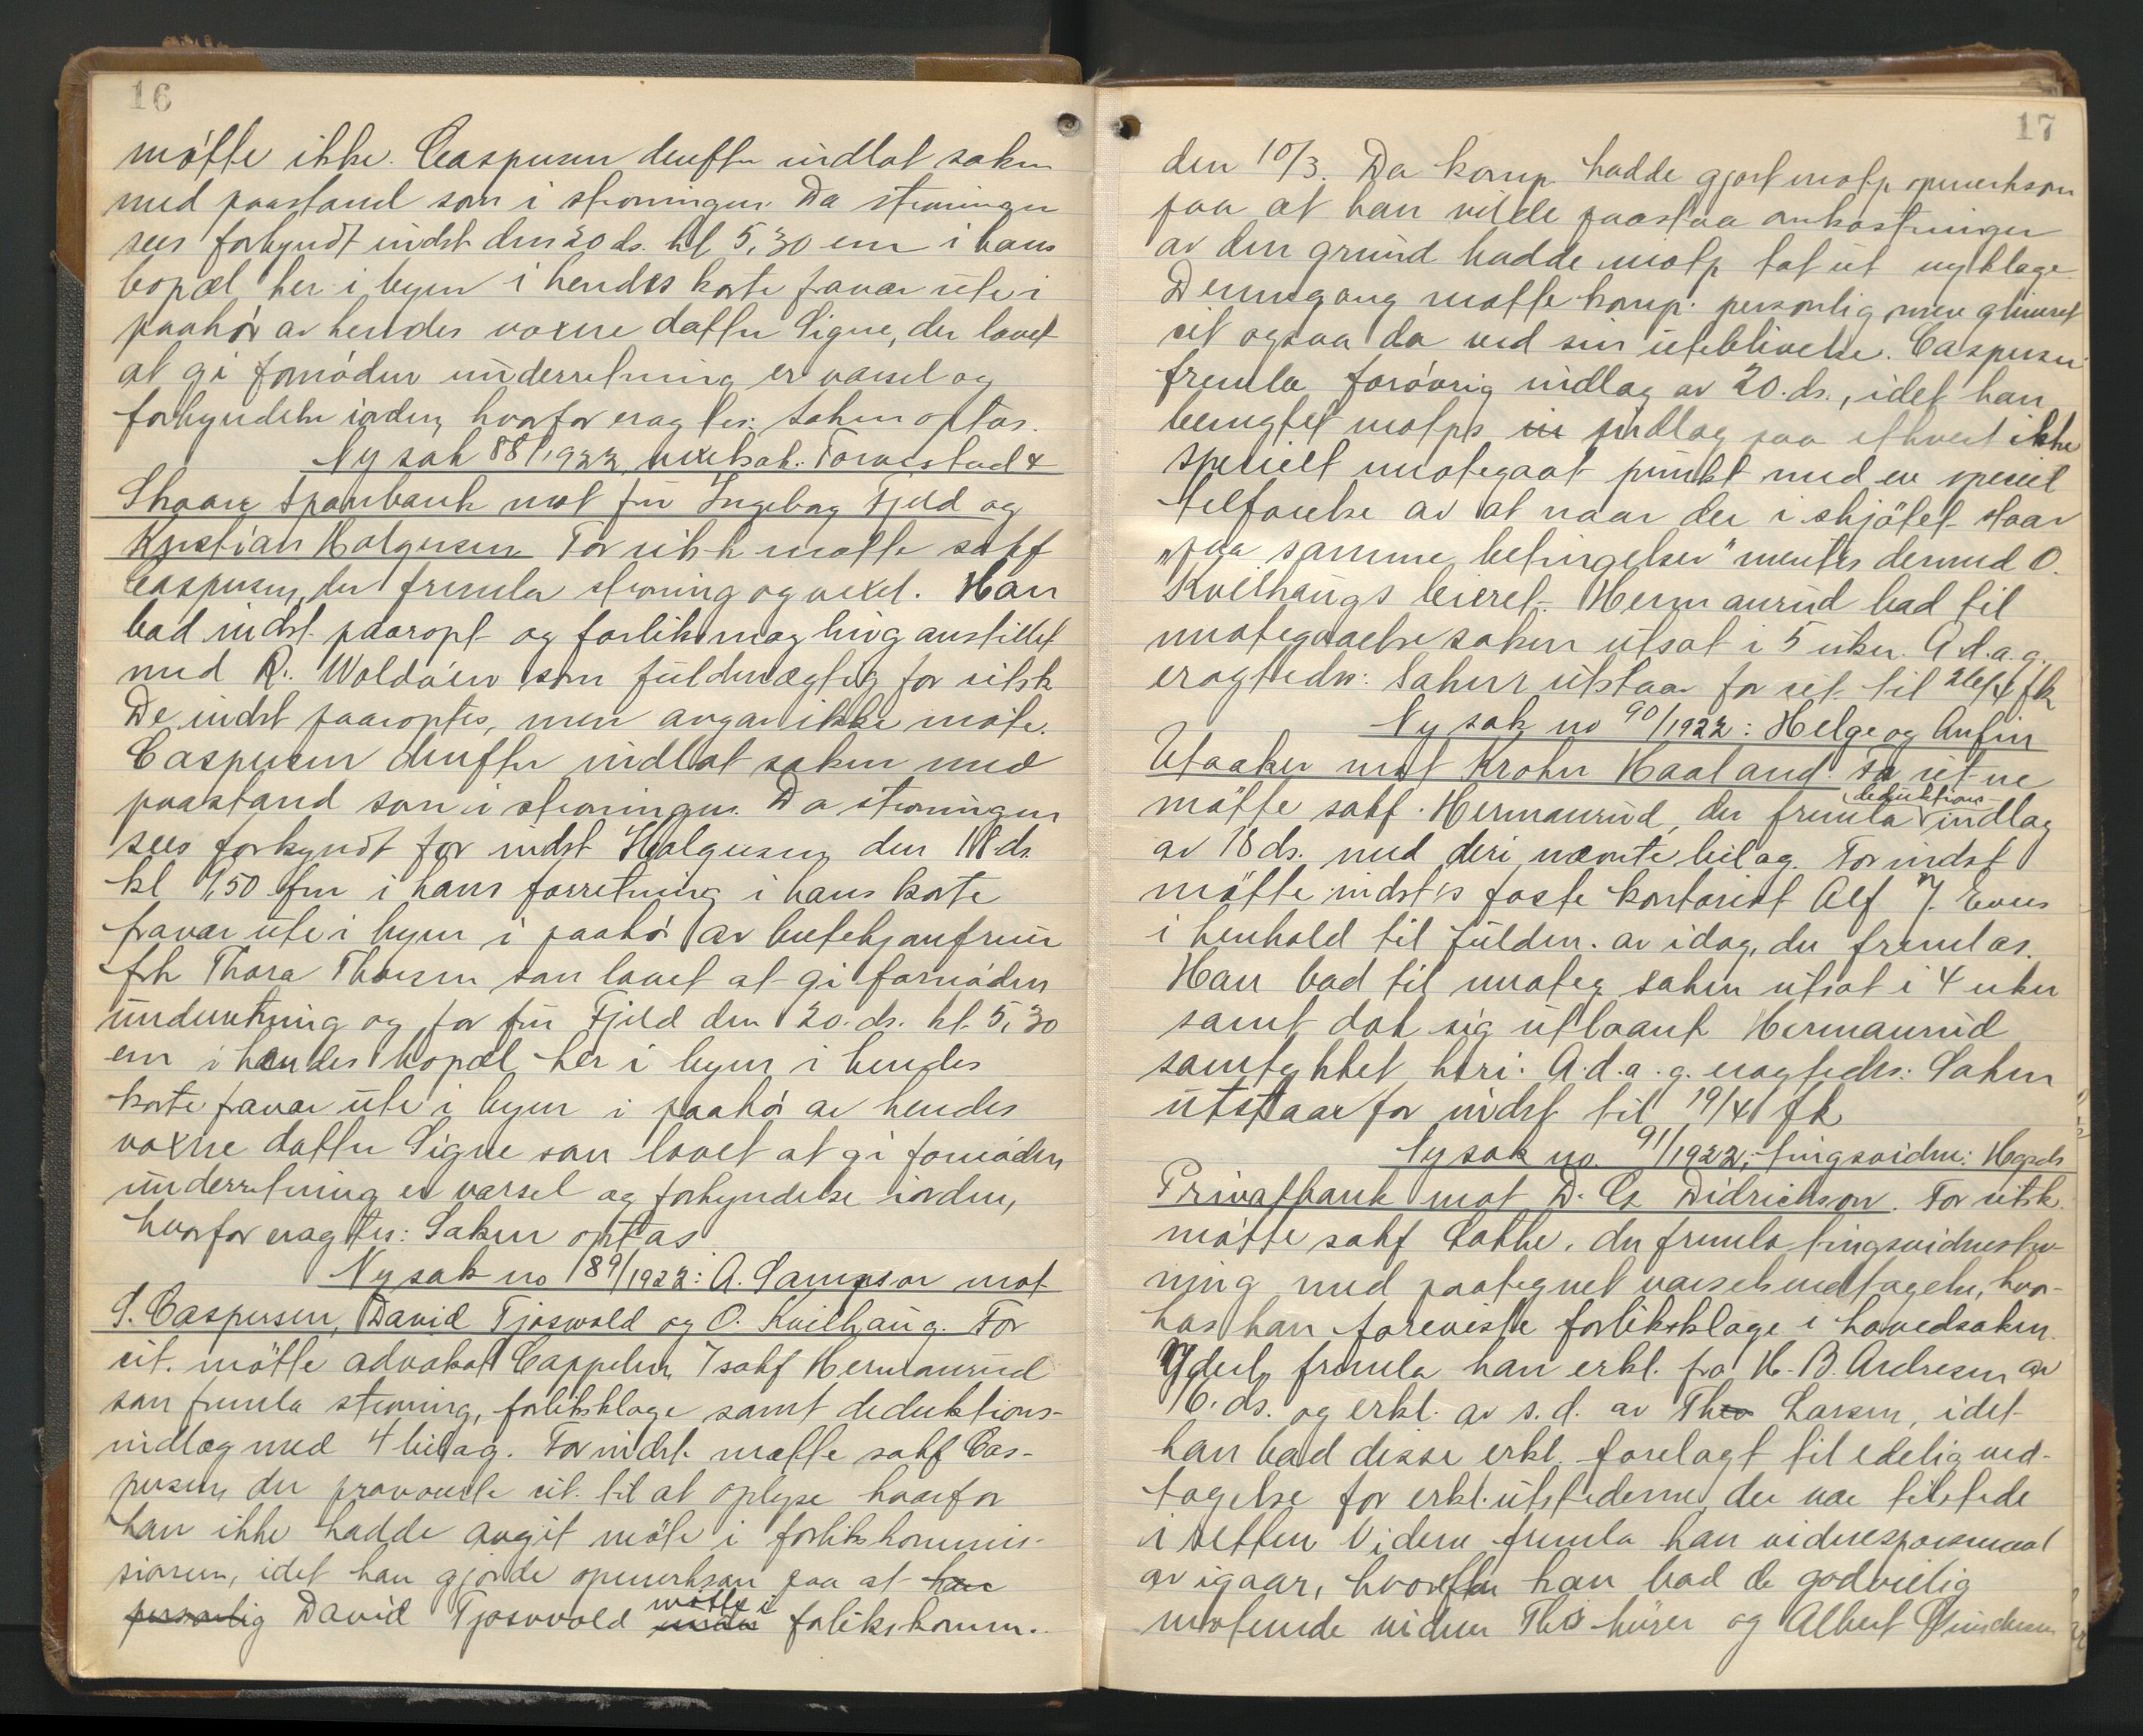 16
møtte ikke. Caspersen derefter indlot saken
med paastand som i stevningen. Da stevningen
sees forkyndt indst. den 20 ds. kl 5,30 em i hans
bopæl her i byen i hendes korte fravær ute i
paahør av hendes voxne datter Signe, der lovet
at gi fornøden underretning er varsel og
forkyndelse iorden, hvorfor eragtes: Saken optas.
Ny sak 88/1922, vexelsak: Torvestad &
Skaare Sparebank mot fru Ingeborg Fjeld og
Kristian Holgersen For citsk møtte sakf
Caspersen, der fremla stevning og vexel. Han
bad indst. paaropt og forliksmægling anstillet
med R. Woldøien som fuldmægtig for citsk
De indst paaroptes, men avgav ikke møte.
Caspersen derefter indlot saken med
paastand som i stevningen. Da stevningen
sees forkyndt for indst Holgersen den 18 ds.
kl 1,50 fm i hans forretning i hans korte
fravær ute i byen i paahør av butikjomfruen
frk Thora Thorsen som lovet at gi fornøden
underretning og for fru Fjeld den 20. ds. kl. 5,30
em i hendes bopæl her i byen i hendes
korte fravær ute i byen i paahør av hendes
voxne datter Signe som lovet at gi fornøden
underretning er varsel og forkyndelse iorden,
hvorfor eragtes: Saken optas
Ny sak no 89/1922: A. Sampson mot
S. Caspersen, David Tjoswold og O. Kvilhaug. For
cit. møtte advokat Cappelen, / sakf Hermanrud
som fremla stevning, forliksklage samt deduktions-
indlæg med 4 bilag. For indst. møtte sakf Cas-
persen, der provoserte cit. til at oplyse hvorfor
han ikke hadde avgit møte i forlikskommis-
sionen, idet han gjorde opmerksom paa at han
personlig David Tjosvold møtte i forlikskomm.
17
den 10/3. Da komp. hadde gjort motp opmerksom
paa at han vilde paastaa omkostninger
av den grund hadde motp tat ut ny klage.
Denne gang møtte komp. personlig, men glimret
cit ogsaa da ved sin uteblivelse. Caspersen
fremla forøvrig indlæg av 20. ds., idet han
benegtet motps in indlæg paa ethvert ikke
specielt imotegaat punkt med en speciel
tilføielse av at naar der i skjøtet staar
"paa samme betingelser" mentes dermed O.
Kvilhaugs leieret. Hermanrud bad til
imotegaaelse saken utsat i 5 uker. A.d.a.g.
eragtedes: Saken utstaar for cit. til 26/4 fk
Ny sak no 90/1922: Helge og Anfin
Utaaker mot Krohn Haaland. For cit ne
møtte sakf. Hermanrud, der fremla deduktions-indlæg
av 18 ds. med deri nævnte bilag. For indst
møtte indst's faste kontorist Alf J. Evers
i henhold til fuldm. av idag, der fremlas.
Han bad til imoteg. saken utsat i 4 uker
samt dok sig utlaant. Hermanrud
samtykket heri. A.d.a.g. eragtedes: Saken
utstaar for indst til 19/4 fk
Ny sak no. 91/1922, tingsvidne: Hgsds
Privatbank mot D. G. Didrichson. For citsk.
møtte sakf Kolbe, der fremla tingsvidnestev-
ning med paategnet varselsmottagelse, hvor-
hos han foreviste forliksklage i hovedsaken.
Yderl. fremla han erkl. fra H. B. Andresen av
16. ds. og erkl. av s. d. av Theo Larsen, idet
han bad disse erkl. forelagt til edelig ved-
tagelse for erkl. utstederne, der var tilstede
i retten Videre fremla han vidnespørsmaal
av igaar, hvorefter han bad de godvillig
møtende vidner Ths hürer og Albert